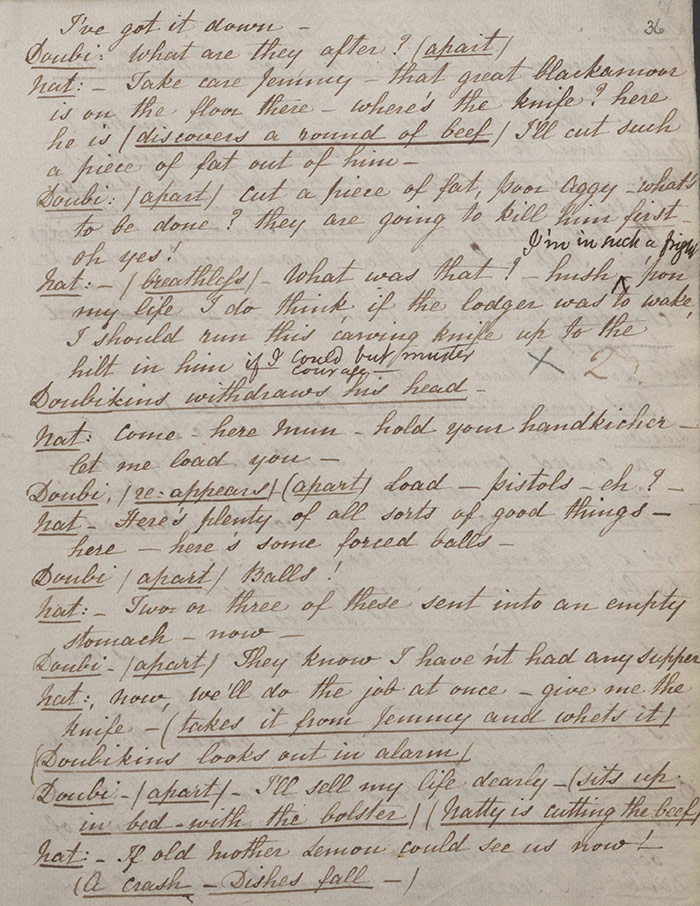 36
I've got it down –
Doubi: What are they after? (apart)
Nat: – Take care Jemmy – that great blackamoor
is on the floor there – where's the knife? here
he is (discovers a round of beef) I'll cut such
a piece of fat out of him –
Doubi: (apart) Cut a piece of fat, poor Aggy – what's
to be done? they are going to kill him first –
oh yes!
I'm in such a fright
Nat: – (breathless) – What was that? – hush – 'pon
my life I do think if the lodger was to wake,
I should run this carving knife up to the
hilt in him if I could but muster
courage –
× 2
Doubikins withdraws his head –
Nat: Come – here Mum – hold your handkicher –
let me load you –
Doubi, (re-appears) (apart) Load – pistols – eh? –
Nat – Here's plenty of all sorts of good things –
here – here's some forced balls –
Doubi (apart) Balls!
Nat: – Two or three of these sent into an empty
stomach – now –
Doubi – (apart) They know I have'nt had any supper
Nat:, now, we'll do the job at once – give me the
knife – (takes it from Jemmy and whets it)
(Doubikins looks out in alarm)
Doubi – (apart) – I'll sell my life dearly – (sits up
in bed – with the bolster) (Natty is cutting the beef)
Nat: – If old Mother Lemon could see us now!
(A crash – Dishes fall –)